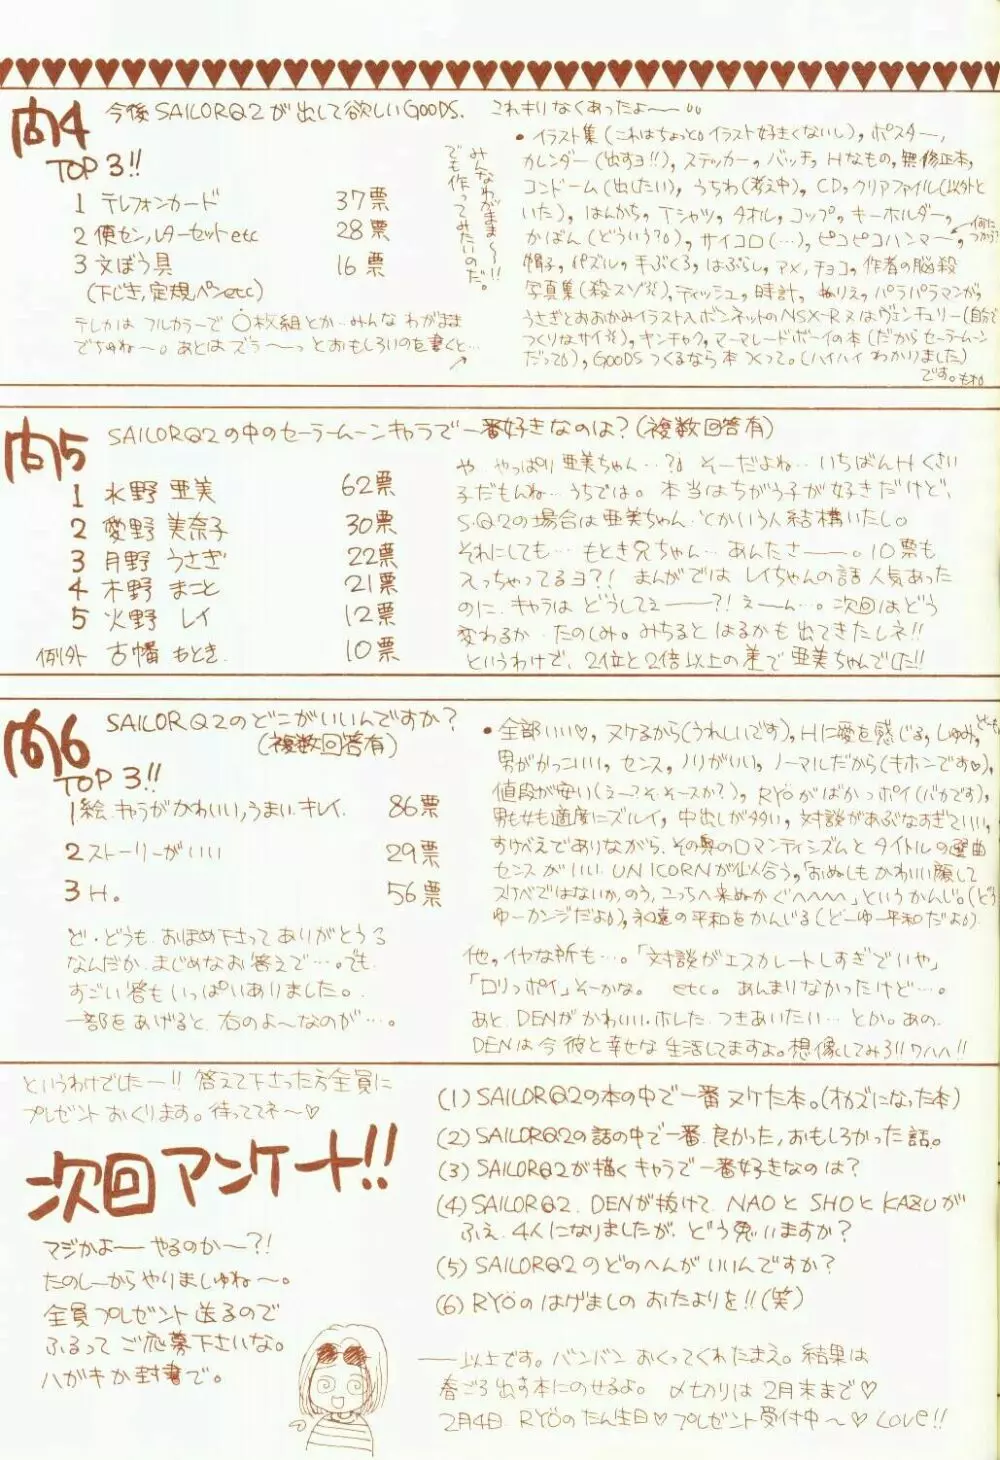 問4 今後SAILORQ2が出して欲しいGOODS.
TOP 3!!
1 テレフォンカード 37票
2 便セン,レターセットetc 28票
3 文ぼう具 16票
(下じき,定規,ペンetc)
みんなわがまま〜!!
でも作ってみたいのだ。
テレカは フルカラーで ○枚組とか…みんな わがまま
でちゅね〜。あとはズラ〜〜っとおもしろいのを書くと…
これキリなくあったよ〜〜
●イラスト集(これはちょっと。イラスト好きくないし), ポスター,
カレンダー(出すヨ!!), ステッカー, バッチ, Hなもの, 無修正本,
コンドーム(出したい), うちわ(考え中), CD, クリアファイル(以外と
いた), はんかち, Tシャツ, タオル, コップ, キーホルダー,
かばん(どういう?), サイコロ(…), ピコピコハンマー,
何に
つかう?
帽子, パズル, 手ぶくろ, はぶらし, アメ, チョコ, 作者の脳殺
写真集(殺スゾ), ティッシュ, 時計, ぬりえ, パラパラマンガ,
うさぎとおおかみイラスト入ボンネットのNSX-R又はヴェンチュリー(自分で
つくりなサイ), キンチャク, マーマレードボーイの本(だからセーラームーン
だって), GOODSつくるなら本つくって。(ハイハイ わかりました)
です。
問5 SAILORQ2の中のセーラームーンキャラで一番好きなのは?(複数回答有)
1 水野 亜美 62票
2 愛野 美奈子 30票
3 月野 うさぎ 22票
4 木野 まこと 21票
5 火野 レイ 12票
例外 古幡 もとき 10票
や やっぱり 亜美ちゃん…? そーだよね… いちばんHくさい
子だもんね…うちでは。本当はちがう子が好きだけど、
S.Q2の場合は亜美ちゃん、とかいう人結構いたし。
それにしても… もとき兄ちゃん… あんたさ───。10票も
入っちゃってるヨ?! まんがでは レイちゃんの話 人気あった
のに、キャラは どうしてえ───?! えーん…。次回はどう
変わるか たのしみ。みちると はるかも出てきたしネ!!
というわけで、2位と2倍以上の差で亜美ちゃんでした!!
問6 SAILORQ2のどこがいいんですか?
(複数回答有)
TOP 3!!
1 絵.キャラがかわいい,うまい.キレイ. 86票
2 ストーリーがいい 29票
3 H。 56票
ど・どうも.おほめ下さってありがとうる
なんだか まじめなお答えで…。でも
すごい答もいっぱいありました。
一部をあげると、右のよ〜なのが…。
●全部いい♡, ヌケるから(うれしいです), Hに愛を感じる, しゅみ,
男がかっこいい, センス, ノリがいい, ノーマルだから(キホンです♡),
値段が安い(え〜?そ.そースか?), RYÖがばかっポイ(バカです),
男も女も適度にズルイ, 中出しが多い, 対談があぶなすぎていい,
すけべえでありながら、その奥のロマンティシズムとタイトルの選曲
センスがいい UNICORNが似合う,「おぬしもかわいい顔して
スケベではないか,のう,こっちへ来ぬかぐへへへへ」というかんじ。(どう
ゆーカンジだよ), 永遠の平和をかんじる(どーゆー平和だよ)
他,イヤな所も…。「対談がエスカレートしすぎでいや」
「ロリっポイ」そーかな。 etc. あんまりなかったけど…。
あと、DENがかわいい.ホレた.つきあいたい… とか。あの、
DENは今彼と幸せな生活してますよ。想像してみろ!!ワハハ!!
というわけでしたー!! 答えて下さった方全員に
プレゼントおくります。待っててネ〜♡
次回アンケート!!
マジかよー やるのか〜?!
たのしーからやりましゅね〜。
全員プレゼント送るので
ふるって ご応募下さいな。
ハガキか封書で。
(1) SAILORQ2の本の中で一番ヌケた本。(オカズになった本)
(2) SAILORQ2の話の中で一番.良かった,おもしろかった話。
(3) SAILORQ2が描くキャラで一番好きなのは?
(4) SAILORQ2. DENが抜けて NAOとSHOとKAZUが
ふえ 4人になりましたが、どう思いますか?
(5) SAILORQ2のどのへんがいいんですか?
(6) RYÖのはげましのおたよりを!!(笑)
──以上です。バンバンおくってくれたまえ。結果は
春ごろ出す本にのせるよ。〆切りは2月末まで♡
2月4日 RYÖのたん生日♡プレゼント受付中〜♡ Love!!